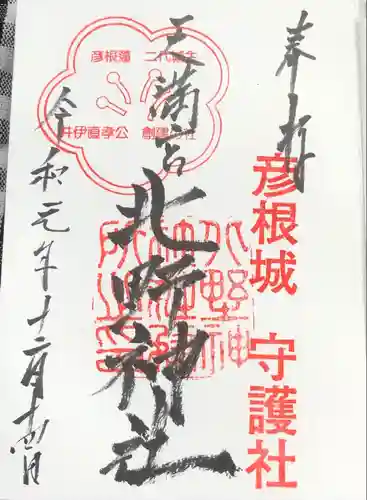 奉拝
彦根城 守護社
天満宮
北野神社
彦根藩 二代藩主
井伊直孝公 創建神社
令和元年十二月十四日